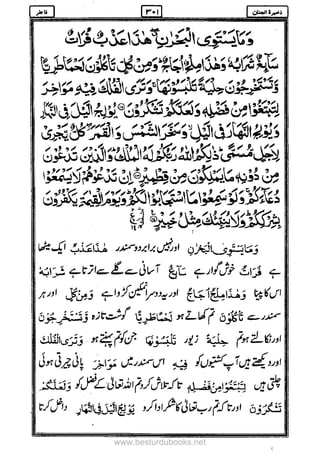 ذخیرۃ الجنان ٣٠١ فاطر
وَمَا يَسْتَوِى الْبَحْرٰنِ ۖ هٰذَا عَذْبٌ فُرَاتٌ
سَآئِغٌ شَرَابُهٗ وَهٰذَا مِلْحٌ اُجَاجٌ ؕ وَمِنْ كُلٍّ تَاْكُلُوْنَ لَحْمًا طَرِيًّا
وَّتَسْتَخْرِجُوْنَ حِلْيَةً تَلْبَسُوْنَهَا ۚ وَتَرَى الْفُلْكَ فِيْهِ مَوَاخِرَ
لِتَبْتَغُوْا مِنْ فَضْلِهٖ وَلَعَلَّكُمْ تَشْكُرُوْنَ ۝ يُوْلِجُ الَّيْلَ فِى النَّهَارِ
وَيُوْلِجُ النَّهَارَ فِى الَّيْلِ ۙ وَسَخَّرَ الشَّمْسَ وَالْقَمَرَ ۖ كُلٌّ يَّجْرِىْ
لِاَجَلٍ مُّسَمًّى ؕ ذٰلِكُمُ اللّٰهُ رَبُّكُمْ لَهُ الْمُلْكُ ؕ وَالَّذِيْنَ تَدْعُوْنَ
مِنْ دُوْنِهٖ مَا يَمْلِكُوْنَ مِنْ قِطْمِيْرٍ ۝ اِنْ تَدْعُوْهُمْ لَا يَسْمَعُوْا
دُعَآءَكُمْ ۚ وَلَوْ سَمِعُوْا مَا اسْتَجَابُوْا لَكُمْ ؕ وَيَوْمَ الْقِيٰمَةِ يَكْفُرُوْنَ
بِشِرْكِكُمْ ؕ وَلَا يُنَبِّئُكَ مِثْلُ خَبِيْرٍ ۝
وَمَا يَسْتَوِى الْبَحْرٰنِ اور نہیں برابر دو سمندر هٰذَا عَذْبٌ ایک میٹھا
ہے فُرَاتٌ خوش گوار ہے سَآئِغٌ آسانی سے گلے سے اترتا ہے شَرَابُهٗ
اس کا پینا وَهٰذَا مِلْحٌ اُجَاجٌ اور یہ دوسرا نمکین کڑوا ہے وَمِنْ كُلٍّ اور ہر
سمندر سے تَاْكُلُوْنَ تم کھاتے ہو لَحْمًا طَرِيًّا گوشت تازہ وَّتَسْتَخْرِجُوْنَ
اور نکالتے ہو تم حِلْيَةً زیور تَلْبَسُوْنَهَا جن کو تم پہنتے ہو وَتَرَى الْفُلْكَ
اور دیکھتے ہیں آپ کشتیوں کو فِيْهِ اس سمندر میں مَوَاخِرَ پانی چیرتی ہوئی
چلتی ہیں لِتَبْتَغُوْا مِنْ فَضْلِهٖ تا کہ تلاش کرو تم اللہ تعالیٰ کے فضل کو وَلَعَلَّكُمْ
تَشْكُرُوْنَ اور تا کہ تم رب تعالیٰ کا شکر ادا کرو يُوْلِجُ الَّيْلَ فِى النَّهَارِ داخل کرتا
www.besturdubooks.net